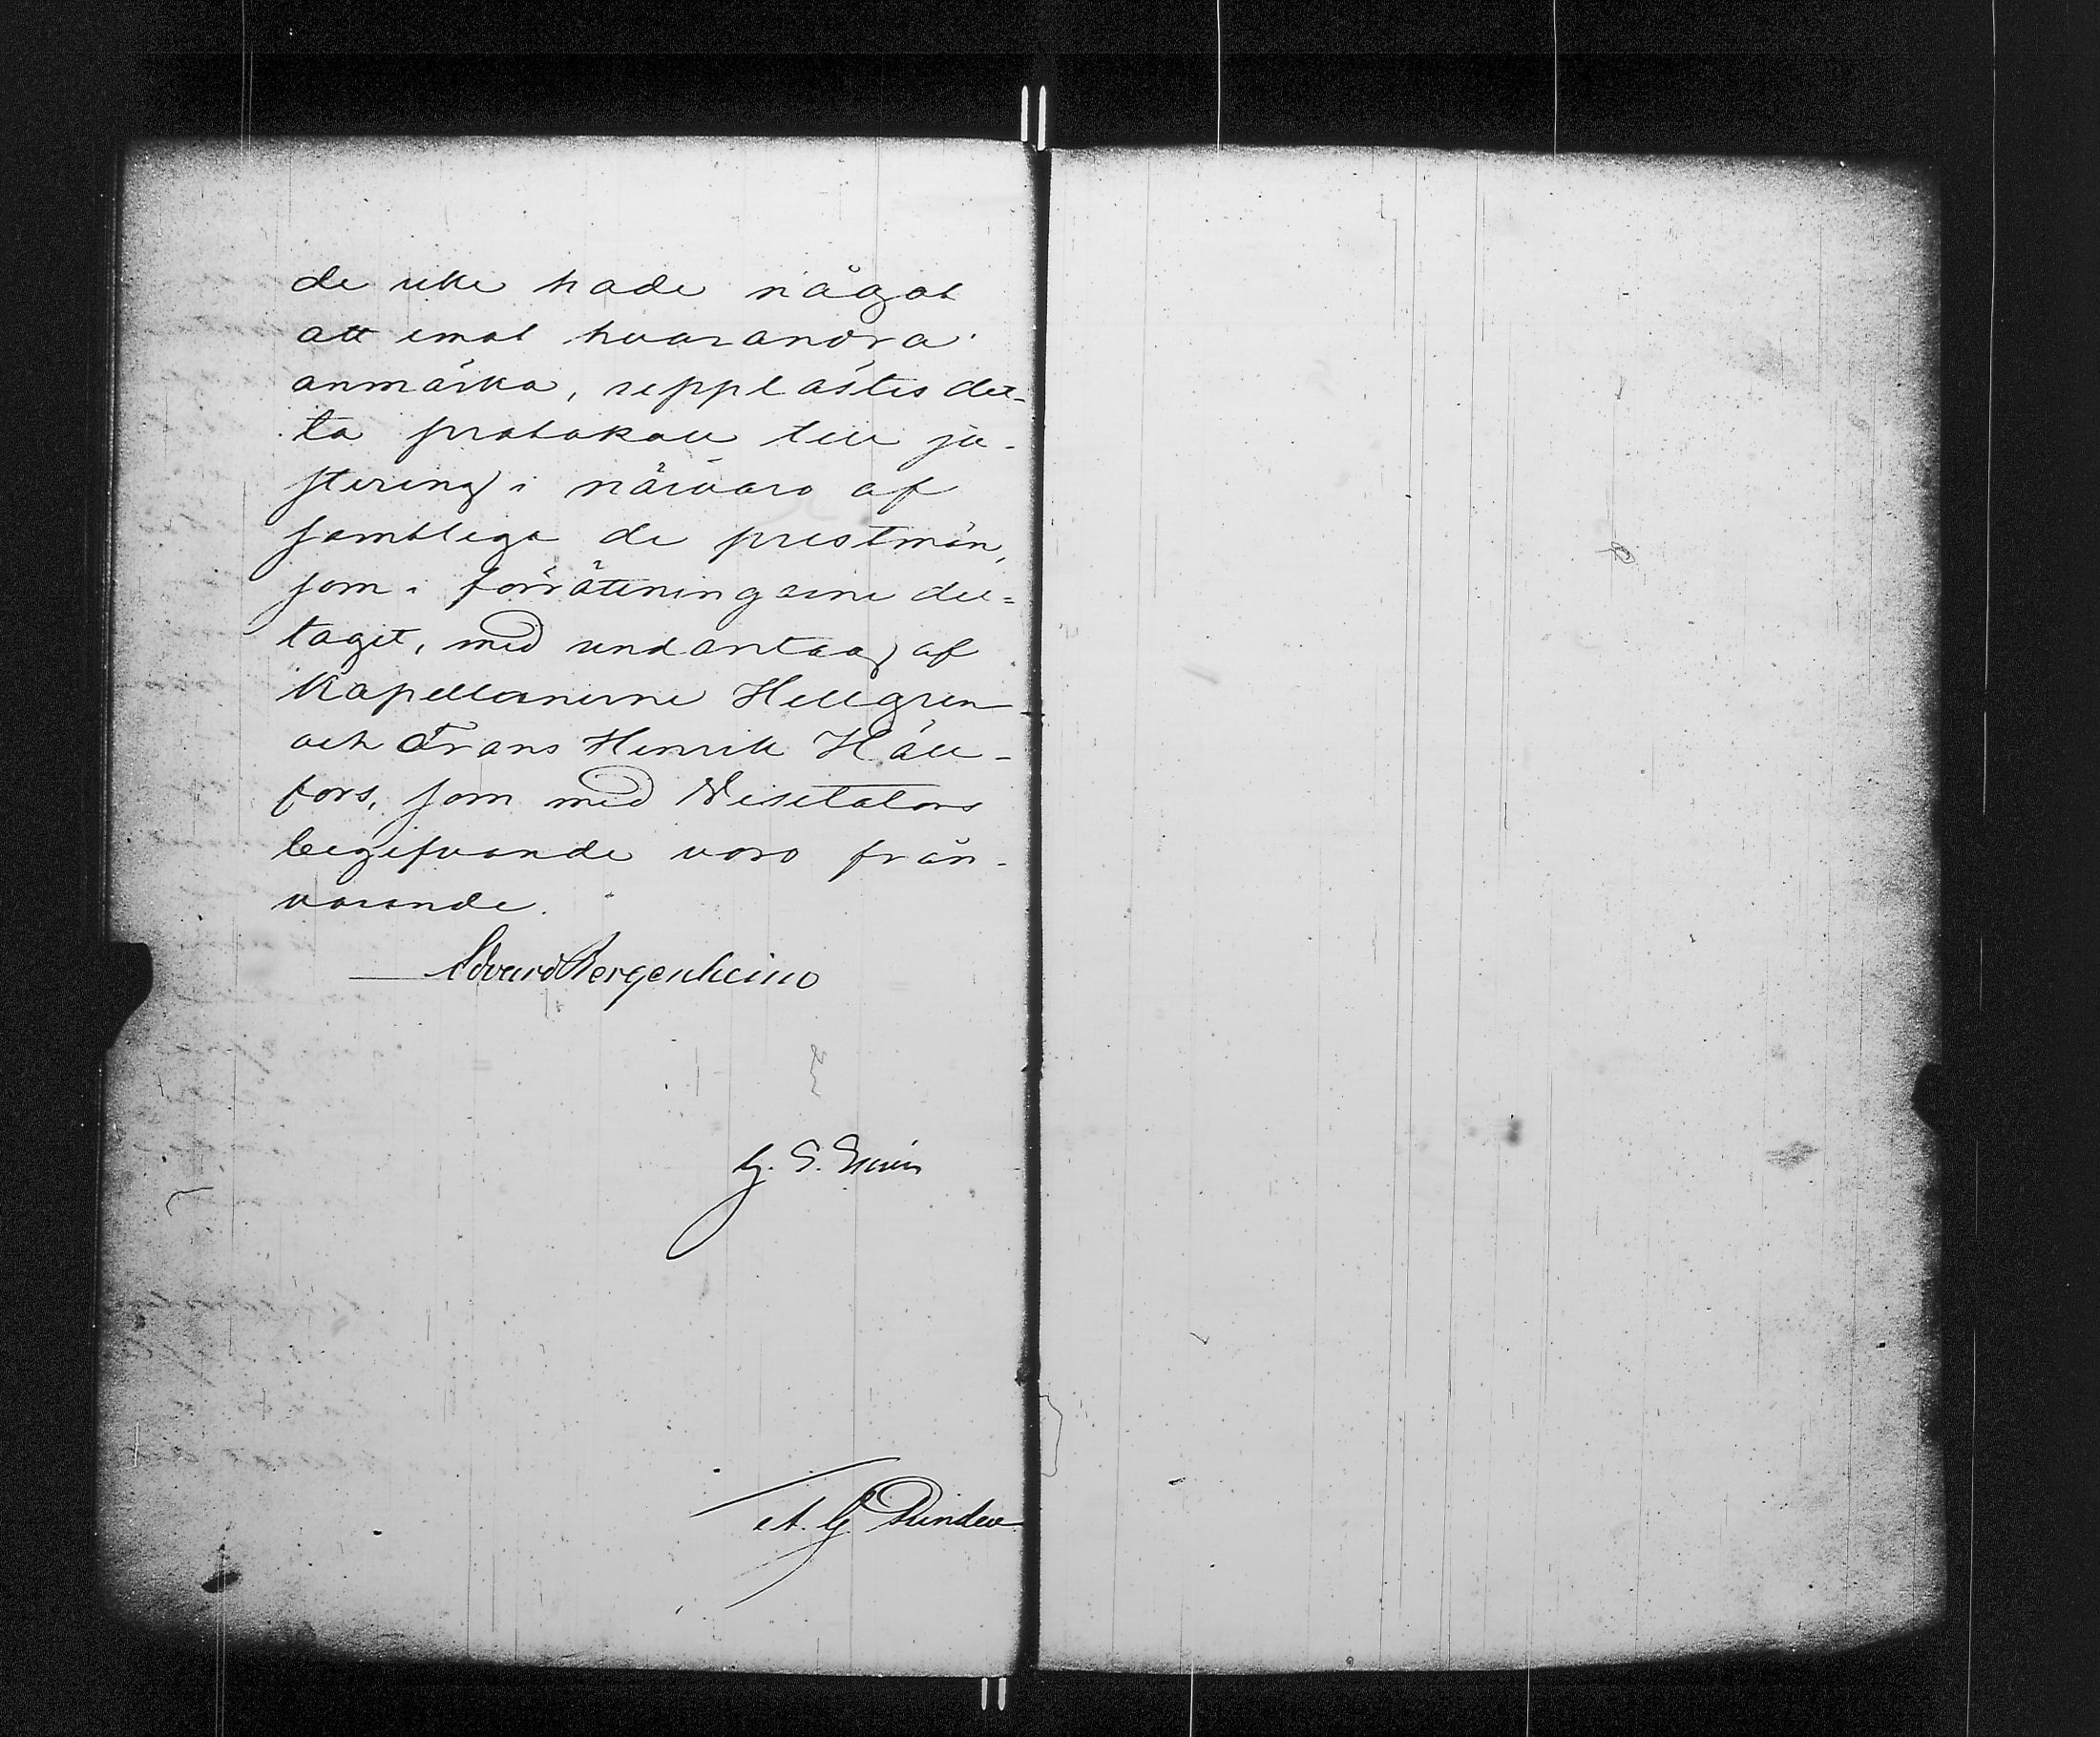 de icke hade något
att emot hvarandra
anmärka, upplästes det-
ta protokoll till ju-
stering i närvaro af
samtliga de prestmän,
som i förrättningarne del-
tagit, med undantag af
Kapellanerne Hellgren
och Frans Henrik Häll-
fors, som med Visitators
begifvande voro från-
varande.
Edvard Bergenheim
G. S.
A. G.